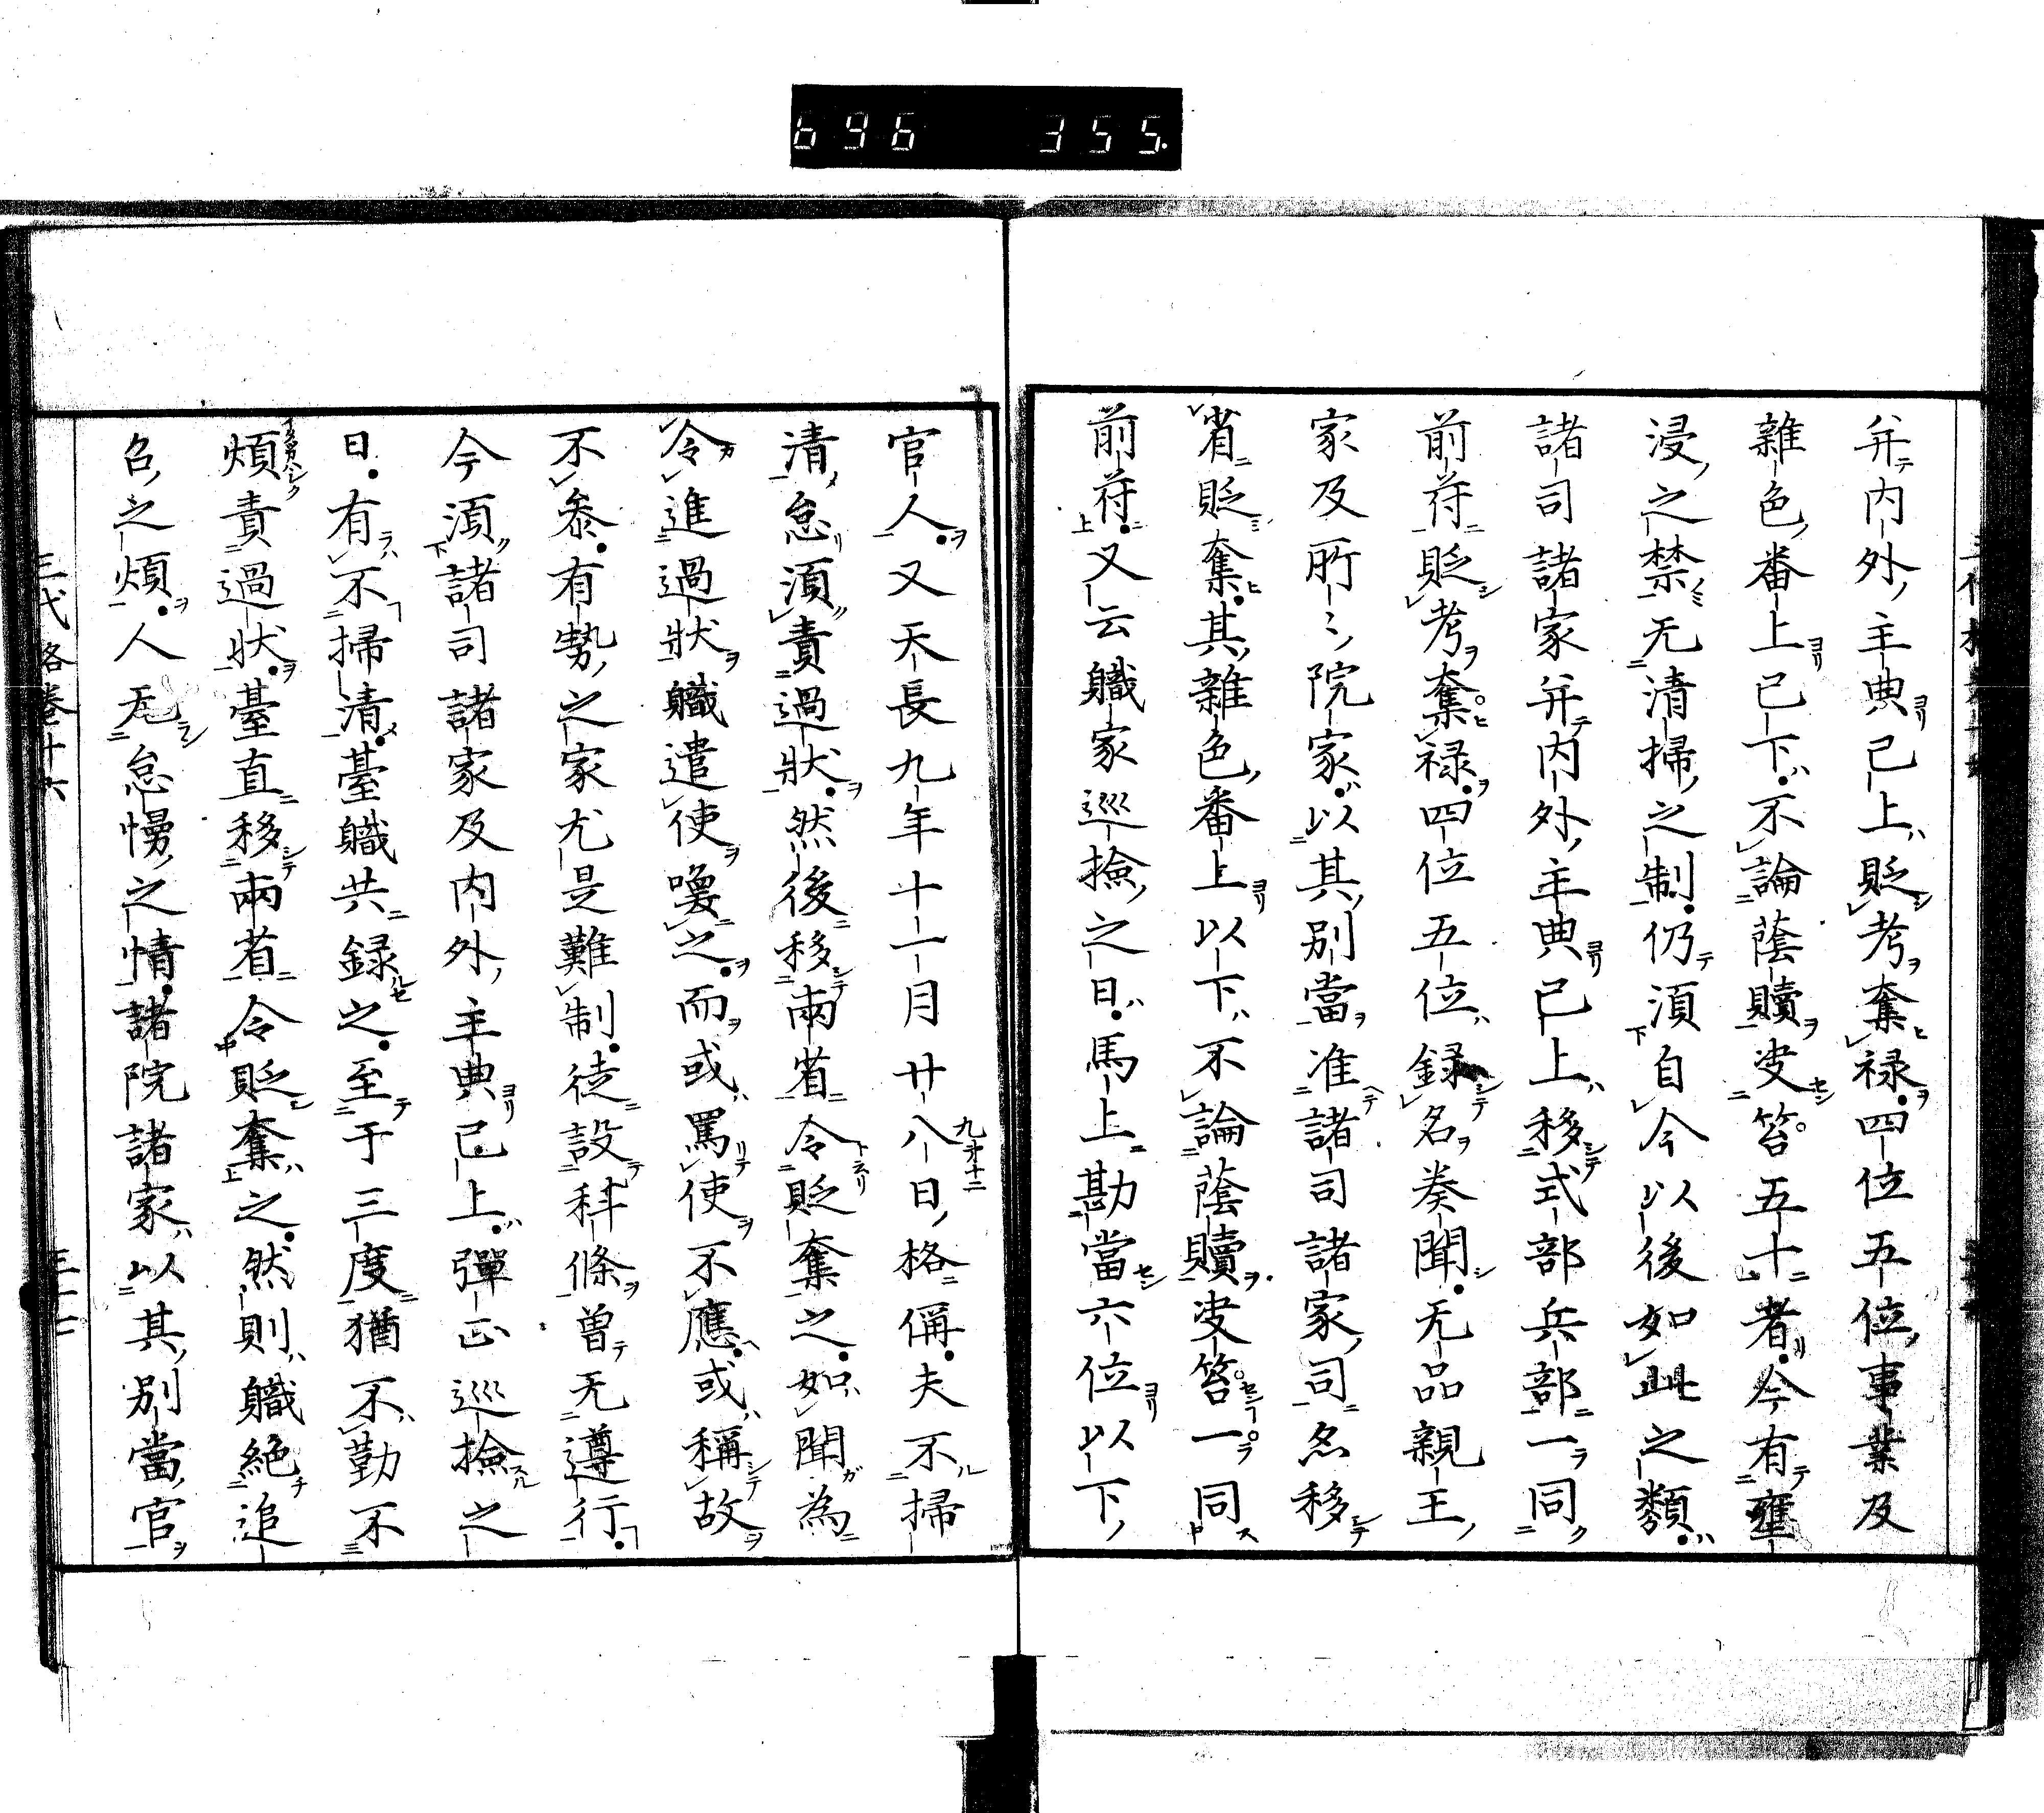 696 355.
弁内外主典已上貶考奪禄四位五位事業及
雜色番上已下不論蔭贖决笞五十者今有壅
浸之禁无清掃之制仍湏自今以後如此之類
諸司諸家弁内外主典已上移式部兵部一同
前符貶考奪禄四位五位録名奏聞无品親王
家及所々院家以其別當准諸司諸家司亦移
省貶奪其雜色番上以下不論蔭贖决笞一同
前符又云職家巡撿之日馬上勘當六位以下
官人又天長九年十一月廿八日格偁夫不掃
清怠湏責過状然後移兩省令貶奪之如聞為
令進過状職遣使喚之而或罵使不應或稱故
不参有勢之家尤是難制徒設科條曽无遵行
今湏諸司諸家及内外主典已上彈正巡撿之
日有不掃清臺職共録之至于三度猶不勤不
煩責過状臺直移兩省令貶奪之然則職絶追
召之煩人无怠慢之情諸院諸家以其別當官
三代格巻十六